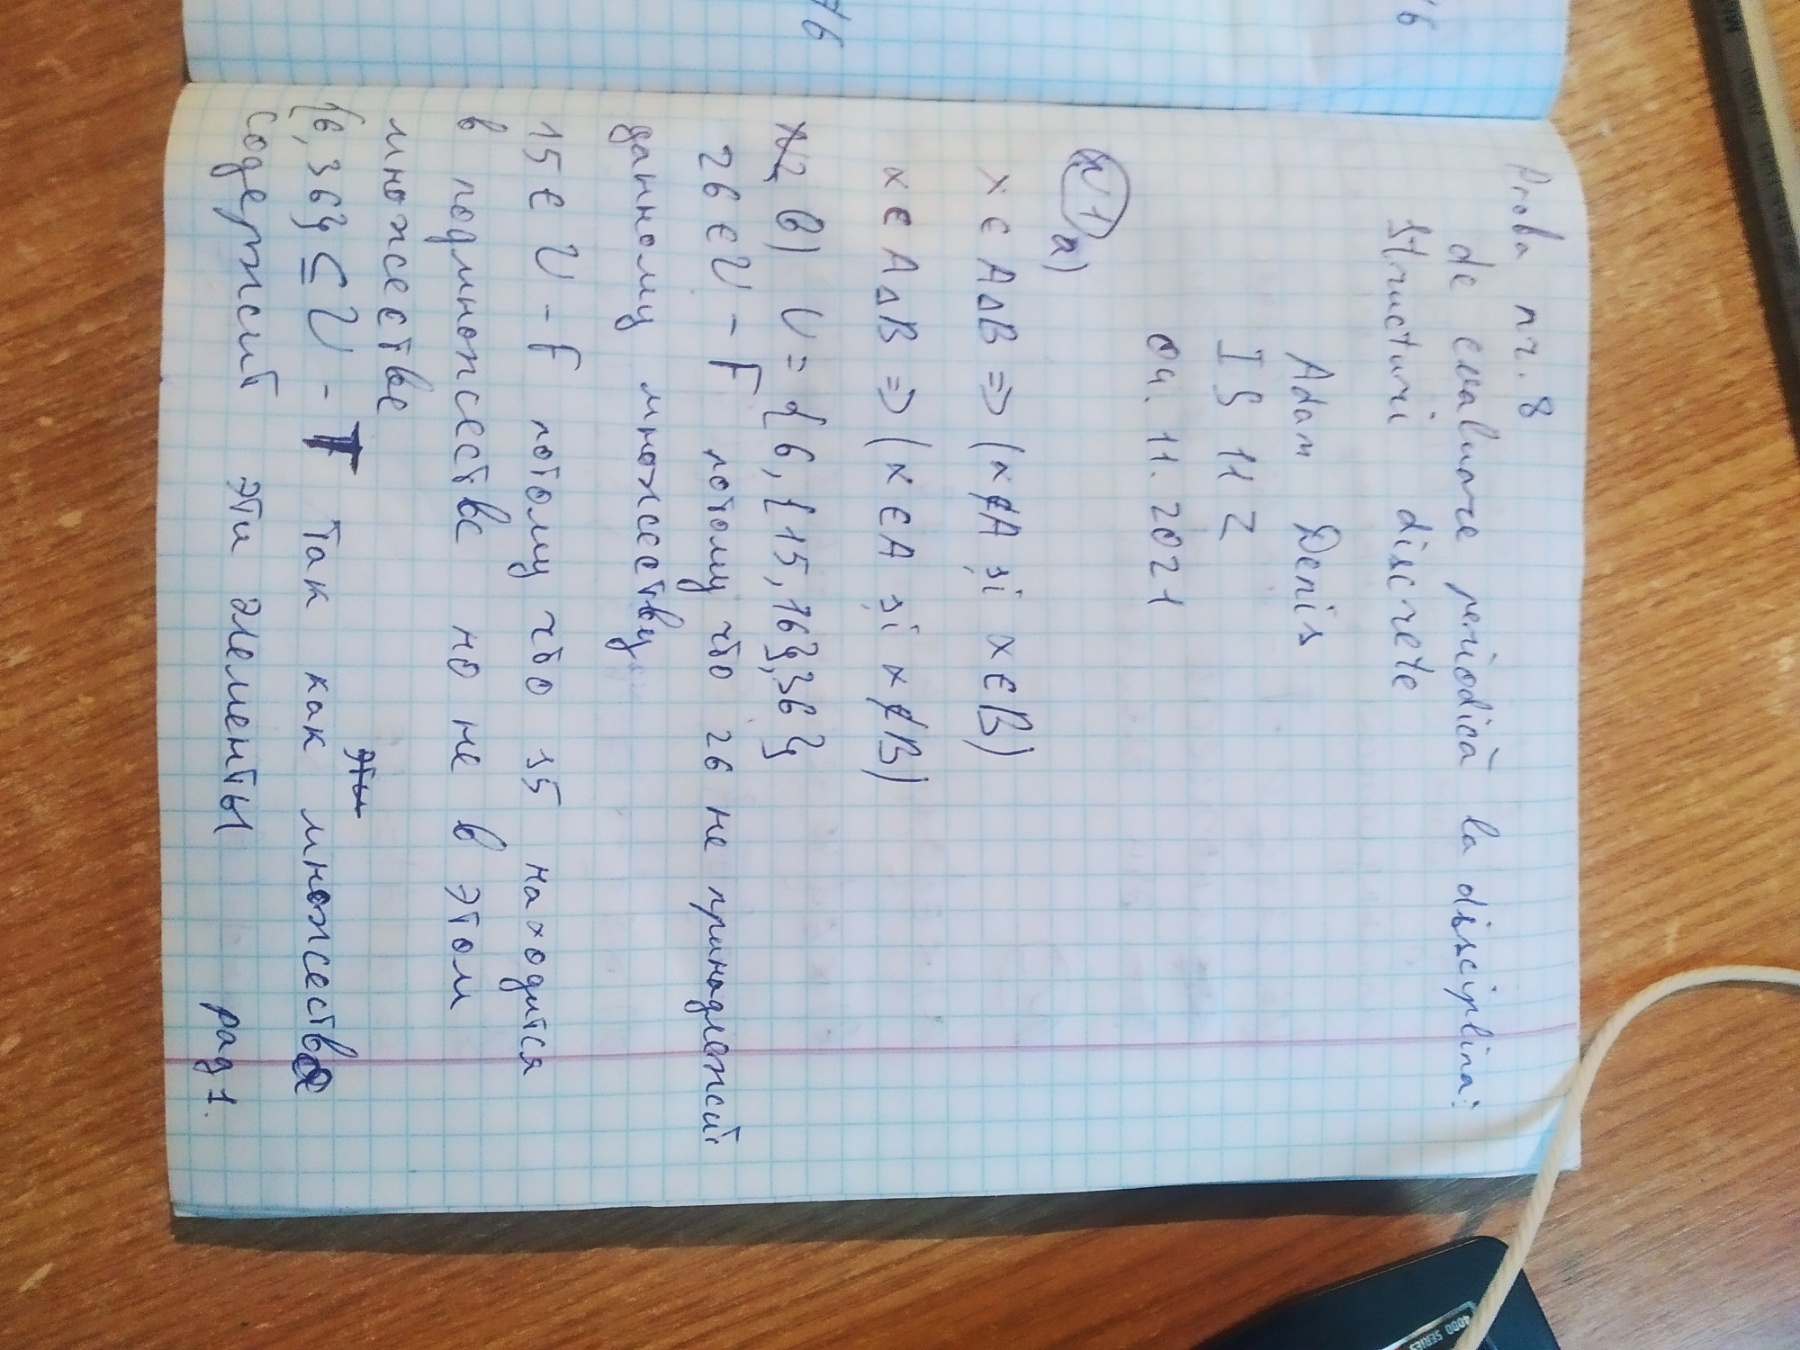 Proba nr. 8
de evaluare periodică la disciplina:
structuri discrete
Adam Denis
IS 11Z
04.11.2021
N1 a)
x ∈ A∆B => (x∉A și x∈B)
x ∈ A∆B => (x∈A și x∉B)
в) U = {6, {15, 16}, 36}
26 ∈ U - F потому что 26 не принадлежит
данному множеству
15 ∈ U - F потому что 15 находится
в подмножестве но не в этом
множестве
эти
{6, 36} ⊆ U - T так как множество
содержит эти элементы
pag 1.
4000 SERIES
76